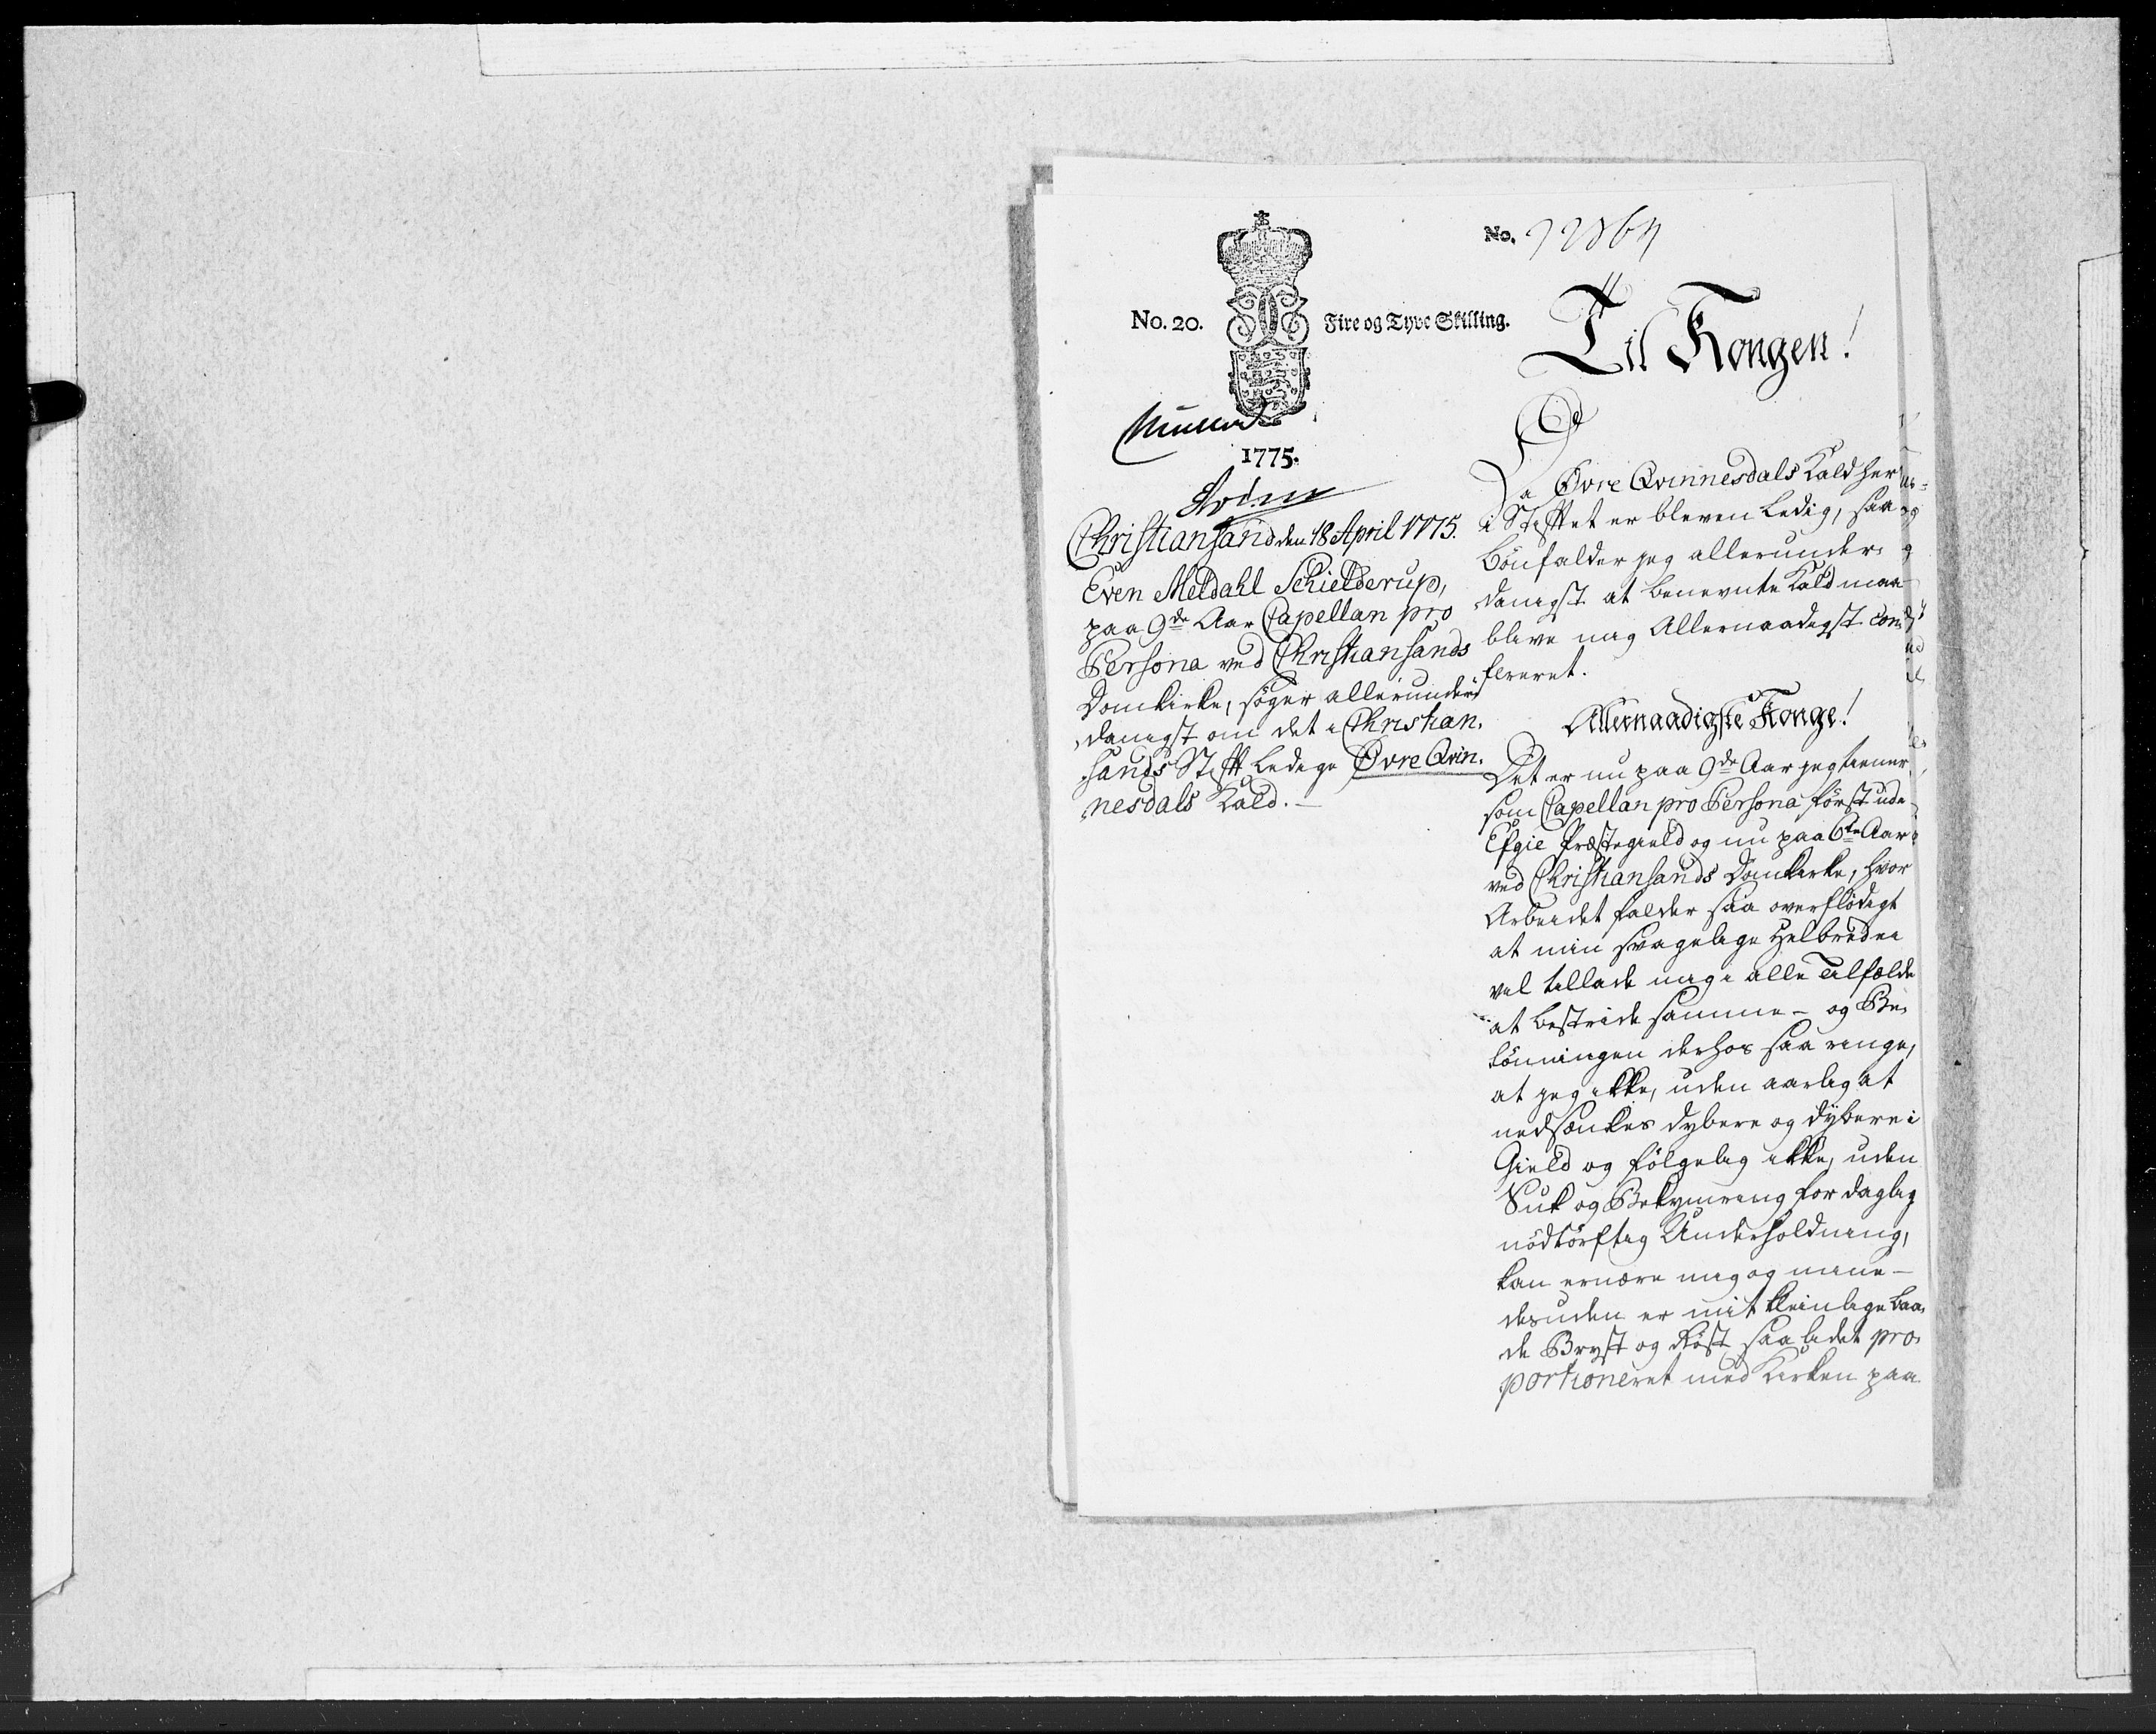 No. 20.
Fire og Tyve Skilling.
1775.
Christiansand den 18 April 1775.
Even Meldahl Schielderup,
paa 9de Aar Capellan pro
Persona ved Christiansands
Domkirke, søger allerunder
danigst om det i Christian,
sands Stift ledige Øvre Qvin,
nesdals Kald.
No.
Til Kongen!
Da Øvre Qvinnesdals Kald her
i Stiftet er bleven ledig, saa
bönfalder jeg allerunder,
danigst at benevnte Kald maa
blive mig Allernaadigst con,
fereret.
Allernaadigste Konge!
Det er nu paa 9de Aar jeg tiener
som Capellan pro Persona först ude
Præstegield og nu paa 6te Aar
ved Christiansands Domkirke, hvor
Arbeidet falder saa overflödigt
at min svagelige Helbred ei
vel tillade mig i alle Tilfælde
at bestride samme - og Be,
lönningen derhos saa ringe,
at jeg ikke, uden aarlig at
nedsænkes dybere og dybere i
Gield og fölgelig ikke, uden
Suk og Bekymring for daglig
nödtörftig Underholdning,
kan ernære mig og mine -
desuden er mit kleinlige baa,
de Bryst og Röst saa lidet pro,
portioneret med Kirken paa